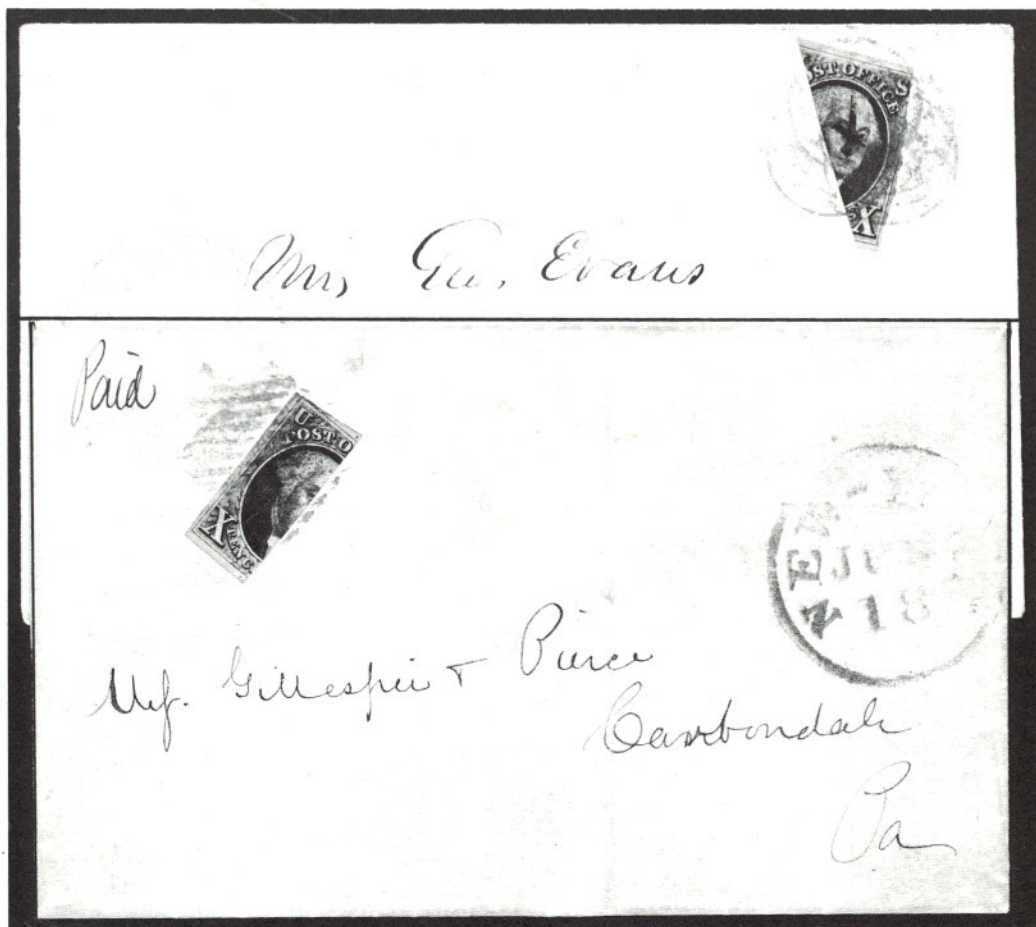 OST OFFICE
S
X
Mr, Geo. Evans
Paid
U
POST O
X
CENT
JU
18
Gillespie & Pierce
Carbondale
Pa